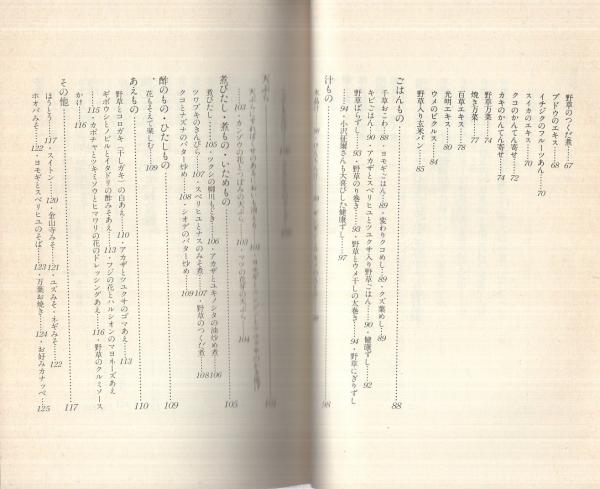 野草のつくだ煮……67
ブドウのエキス……68
イチジクのフルーツあん……70
スイカのエキス……70
クコのかんてん寄せ……72
カキのかんてん寄せ……74
野草万葉……74
焼き万葉……77
百草エキス……80
光明エキス……78
ウメのピクルス……84
野草入り玄米パン……85
ごはんもの……88
千草おこわ……88・ヨモギごはん……89・変わりクコめし……89・クズ葉めし……89
キビごはん……90・アカザとスベリヒユとツユクサ入り野草ごはん……90・健康ずし……92
野草ばらずし……93・野草のり巻き……93・野草とウメ干しの大巻き……94・野草にぎりずし
……94・小沢征爾さんも大喜びした健康ずし……97
汁もの……98
天ぷら
……103・カンゾウの花とつぼみの天ぷら……103・マツの花芽の天ぷら……104
煮びたし・煮もの・いためもの……105
煮びたし……105・ツクシの柳川もどき……106・アカザとユキノシタの油炒め煮……106
ツワブキのきんぴら……107・スベリヒユとナスのみそ煮……107・野草のつくだ煮……108
クコとナズナのバター炒め……108・シオデのバター炒め……109
酢のもの・ひたしもの……109
花もそえて楽しむ……109
あえもの……110
野草とコロガキ(干しガキ)の白あえ……110・アカザとツユクサのゴマあえ……113
ギボウシとノビルとイタドリの酢みそあえ……113・フジの花とハルシオンのマヨネーズあえ
……115・カボチャとツキミソウとヒマワリの花のドレッシングあえ……116・野草のクルミソース
かけ……116
その他……117
ほうとう……117・スイトン……120・金山寺みそ……121・ユズみそ・ネギみそ……122
ホオバみそ……122・ヨモギとスベリヒユのそば……123・万葉お焼き……124・お好みカナッペ……125